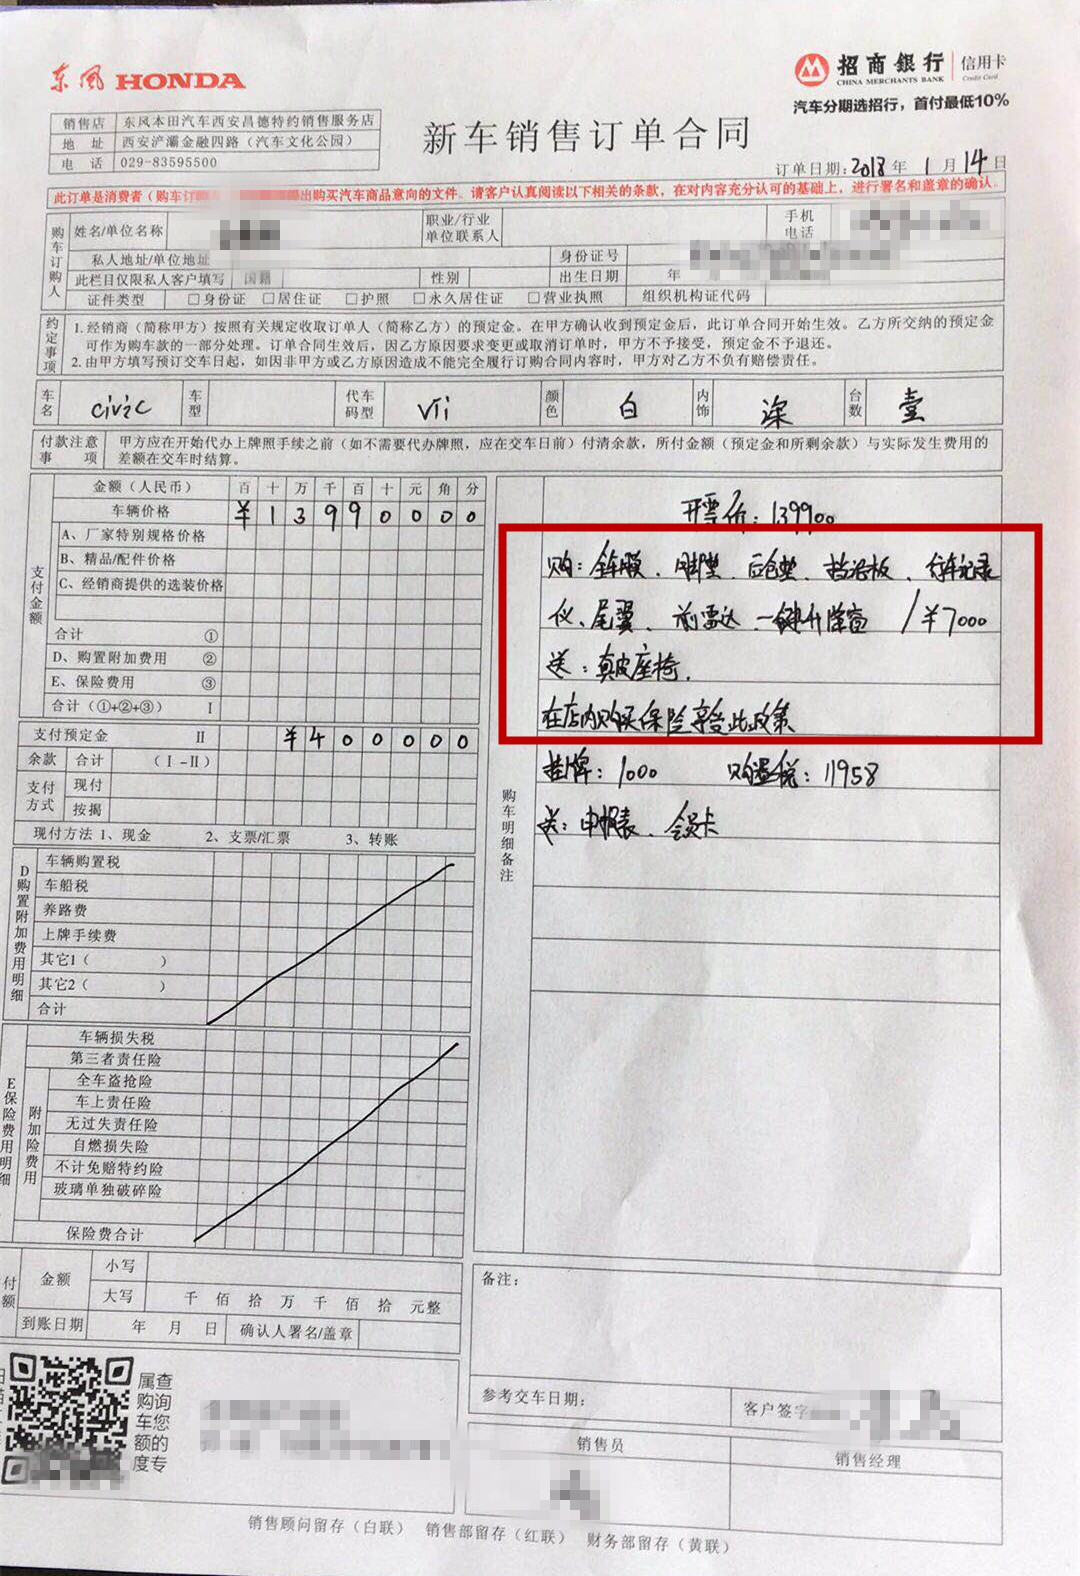 东风 HONDA
招商銀行 信用卡
CHINA MERCHANTS BANK Credit Card
汽车分期选招行，首付最低10%
销售店 东风本田汽车西安昌德特约销售服务店
地 址 西安浐灞金融四路（汽车文化公园）
电 话 029-83595500
新车销售订单合同
订单日期：2018年1月14日
此订单是消费者（购车订 出购买汽车商品意向的文件。请客户认真阅读以下相关的条款，在对内容充分认可的基础上，进行署名和盖章的确认。
购车订购人
姓名/单位名称 职业/行业 单位联系人 手机 电话
私人地址/单位地址 身份证号
此栏目仅限私人客户填写 国籍 性别 出生日期 年
证件类型 □身份证 □居住证 □护照 □永久居住证 □营业执照 组织机构证代码
约定事项
1.经销商（简称甲方）按照有关规定收取订单人（简称乙方）的预定金。在甲方确认收到预定金后，此订单合同开始生效。乙方所交纳的预定金
可作为购车款的一部分处理。订单合同生效后，因乙方原因要求变更或取消订单时，甲方不予接受，预定金不予退还。
2.由甲方填写预订交车日起，如因非甲方或乙方原因造成不能完全履行订购合同内容时，甲方对乙方不负有赔偿责任。
车名 civic 车型 代车码型 VTi 颜色 白 内饰 深 台数 壹
付款注意事项 甲方应在开始代办上牌照手续之前（如不需要代办牌照，应在交车日前）付清余款，所付金额（预定金和所剩余款）与实际发生费用的
差额在交车时结算。
支付金额
金额（人民币） 百 十 万 千 百 十 元 角 分
车辆价格 ¥ 1 3 9 9 0 0 0 0
A、厂家特别规格价格
B、精品/配件价格
C、经销商提供的选装价格
合计 ①
D、购置附加费用 ②
E、保险费用 ③
合计（①+②+③） I
支付预定金 II ¥ 4 0 0 0 0 0
余款 合计 （I-II）
支付方式 现付
按揭
现付方法 1、现金 2、支票/汇票 3、转账
D购置附加费用明细
车辆购置税
车船税
养路费
上牌手续费
其它1（ ）
其它2（ ）
合计
E保险费用明细
车辆损失税
第三者责任险
附加险费用
全车盗抢险
车上责任险
无过失责任险
自燃损失险
不计免赔特约险
玻璃单独破碎险
保险费合计
付额 金额 小写
大写 千 佰 拾 万 千 佰 拾 元整
到账日期 年 月 日 确认人署名/盖章
购车明细备注
开票价：139900
购：全车膜、脚垫、后仓垫、挡泥板、行车记录
仪、尾翼、前雷达、一键升降窗 /¥7000
送：真皮座椅，
在店内购买保险享受此政策
挂牌：1000 购置税：11958
送：申报表、会员卡
备注：
参考交车日期： 客户签字
销售员 销售经理
属查
购询
车您
额的
度专
销售顾问留存（白联） 销售部留存（红联） 财务部留存（黄联）